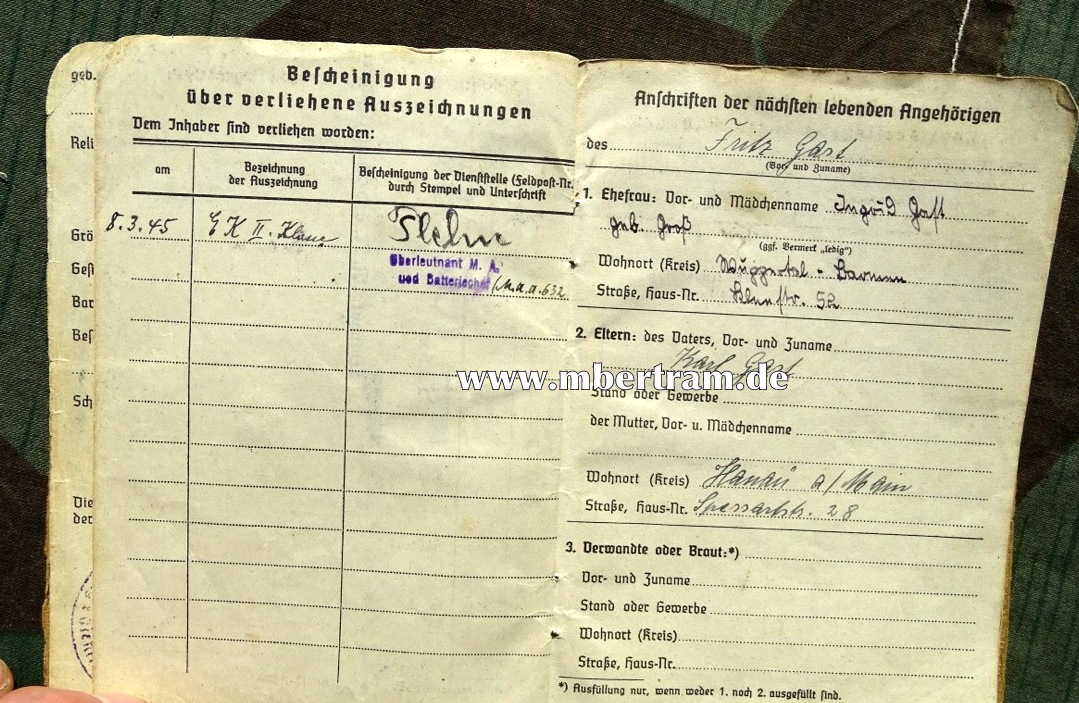 geb.
Reli
Grö
Gest
Bar
Bes
Sch
Die
der
Bescheinigung
über verliehene Auszeichnungen
Dem Inhaber sind verliehen worden:
am
Bezeichnung
der Auszeichnung
Bescheinigung der Dienststelle (Feldpost-Nr.
durch Stempel und Unterschrift
8.3.45 EK II. Klasse
Oberleutnant M. A.
und Batteriechef /M.a.a. 632
Anschriften der nächsten lebenden Angehörigen
des Fritz Gast
(Vor- und Zuname)
1. Ehefrau: Vor- und Mädchenname Ingrid Gast
geb. Groß
(ggf. Vermerk „ledig")
Wohnort (Kreis) Wuppertal - Barmen
Straße, Haus-Nr. 52
2. Eltern: des Vaters, Vor- und Zuname
Karl Gast
www.mbertram.de
Stand oder Gewerbe
der Mutter, Vor- u. Mädchenname
Wohnort (Kreis) Hanau a/Main
Straße, Haus-Nr. Spessartstr. 28
3. Verwandte oder Braut:*)
Vor- und Zuname
Stand oder Gewerbe
Wohnort (Kreis)
Straße, Haus-Nr.
*) Ausfüllung nur, wenn weder 1. noch 2. ausgefüllt sind.